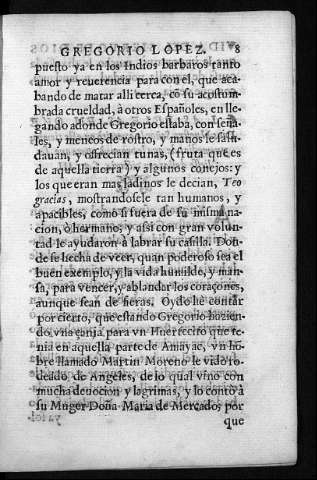 GREGORIO LOPEZ. 8
puesto ya en los Indios barbaros tanto
amor y reuerencia para con el, que aca-
bando de matar alli cerca, cõ su acostum-
brada crueldad, à otros Españoles, en lle-
gando adonde Gregorio estaba, con seña-
les, y meneos de rostro, y manos le salu-
dauan, y ofrecian tunas, (fruta que es
de aquella tierra) y algunos conejos: y
los que eran mas ladinos le decian, Teo
gracias, mostrandosele tan humanos, y
apacibles, como si fuera de su misma na-
cion, ò hermano; y assi con gran volun-
tad le ayudaron à labrar su casilla. Don-
de se hecha de veer, quan poderoso sea el
buen exemplo, y la vida humilde, y man-
sa, para vencer, y ablandar los coraçones,
aunque sean de fieras. Oydo he contar
por cierto, que estando Gregorio haziен-
do vna çanja para vn Huertecito que te-
nia en aquella parte de Amayac, vn hõ-
bre llamado Martin Moreno le vido ro-
deado de Angeles, de lo qual vino con
mucha deuocion y lagrimas, y lo contò à
su Muger Doña Maria de Mercado; por
que